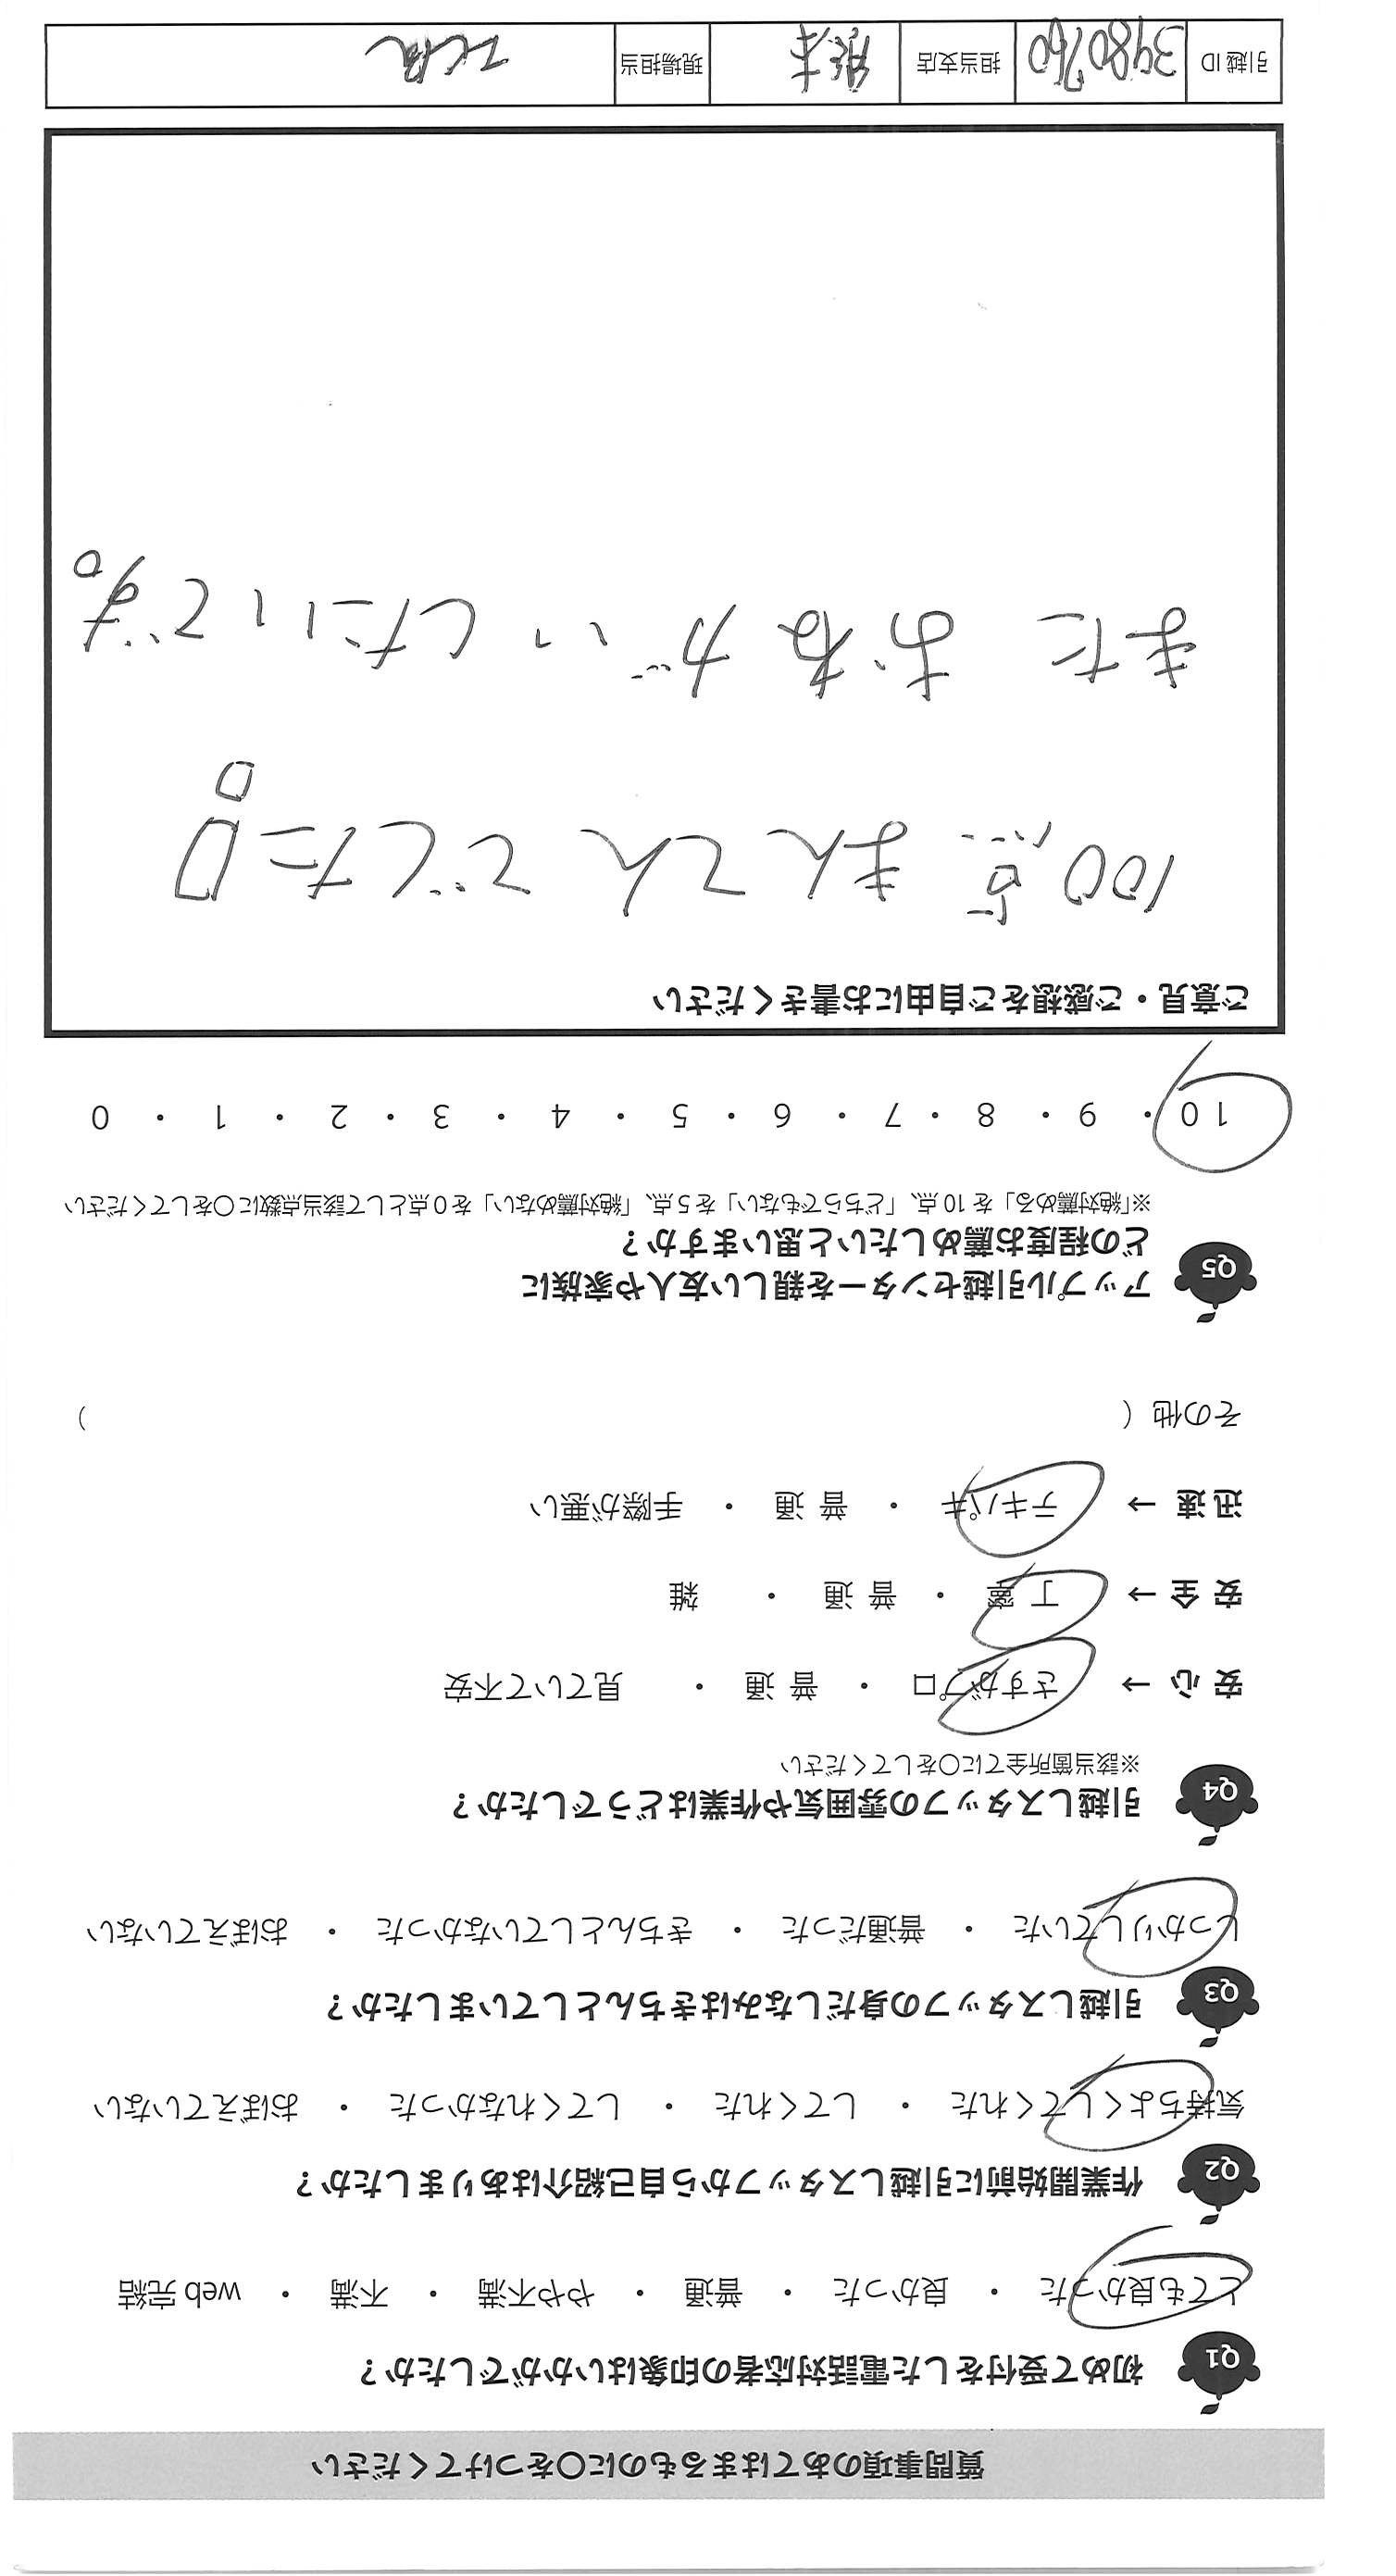 質問事項のあてはまるものに〇をつけてください
Q1 初めて受付をした電話対応者の印象はいかがでしたか？
とても良かった ・ 良かった ・ 普通 ・ やや不満 ・ 不満 ・ web 完結
Q2 作業開始前に引越しスタッフから自己紹介はありましたか？
気持ちよくしてくれた ・ してくれた ・ してくれなかった ・ おぼえていない
Q3 引越しスタッフの身だしなみはきちんとしていましたか？
しっかりしていた ・ 普通だった ・ きちんとしていなかった ・ おぼえていない
Q4 引越しスタッフの雰囲気や作業はどうでしたか？
※該当箇所全てに〇をしてください
安 心 → さすがプロ ・ 普 通 ・ 見ていて不安
安 全 → 丁 寧 ・ 普 通 ・ 雑
迅 速 → テキパキ ・ 普 通 ・ 手際が悪い
その他（ ）
Q5 アップル引越センターを親しい友人や家族に
どの程度お薦めしたいと思いますか？
※「絶対薦める」を 10 点、「どちらでもない」を 5 点、「絶対薦めない」を 0 点として該当点数に〇をしてください
10 ・ 9 ・ 8 ・ 7 ・ 6 ・ 5 ・ 4 ・ 3 ・ 2 ・ 1 ・ 0
ご意見・ご感想をご自由にお書きください
100点 まんてん でした!
また おねがい したいです。
引越 ID 3980760 担当支店 熊本 現場担当